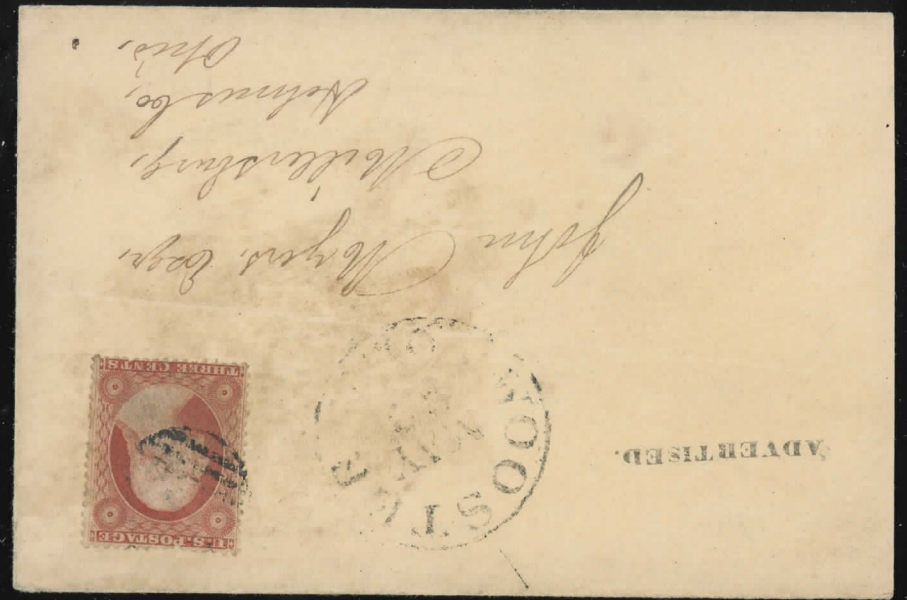 ADVERTISED.
WOOSTER
O
MAY
U.S. POSTAGE
THREE CENTS
John Moyers, Esqr.
Millersburg,
Holmes Co,
Ohio.